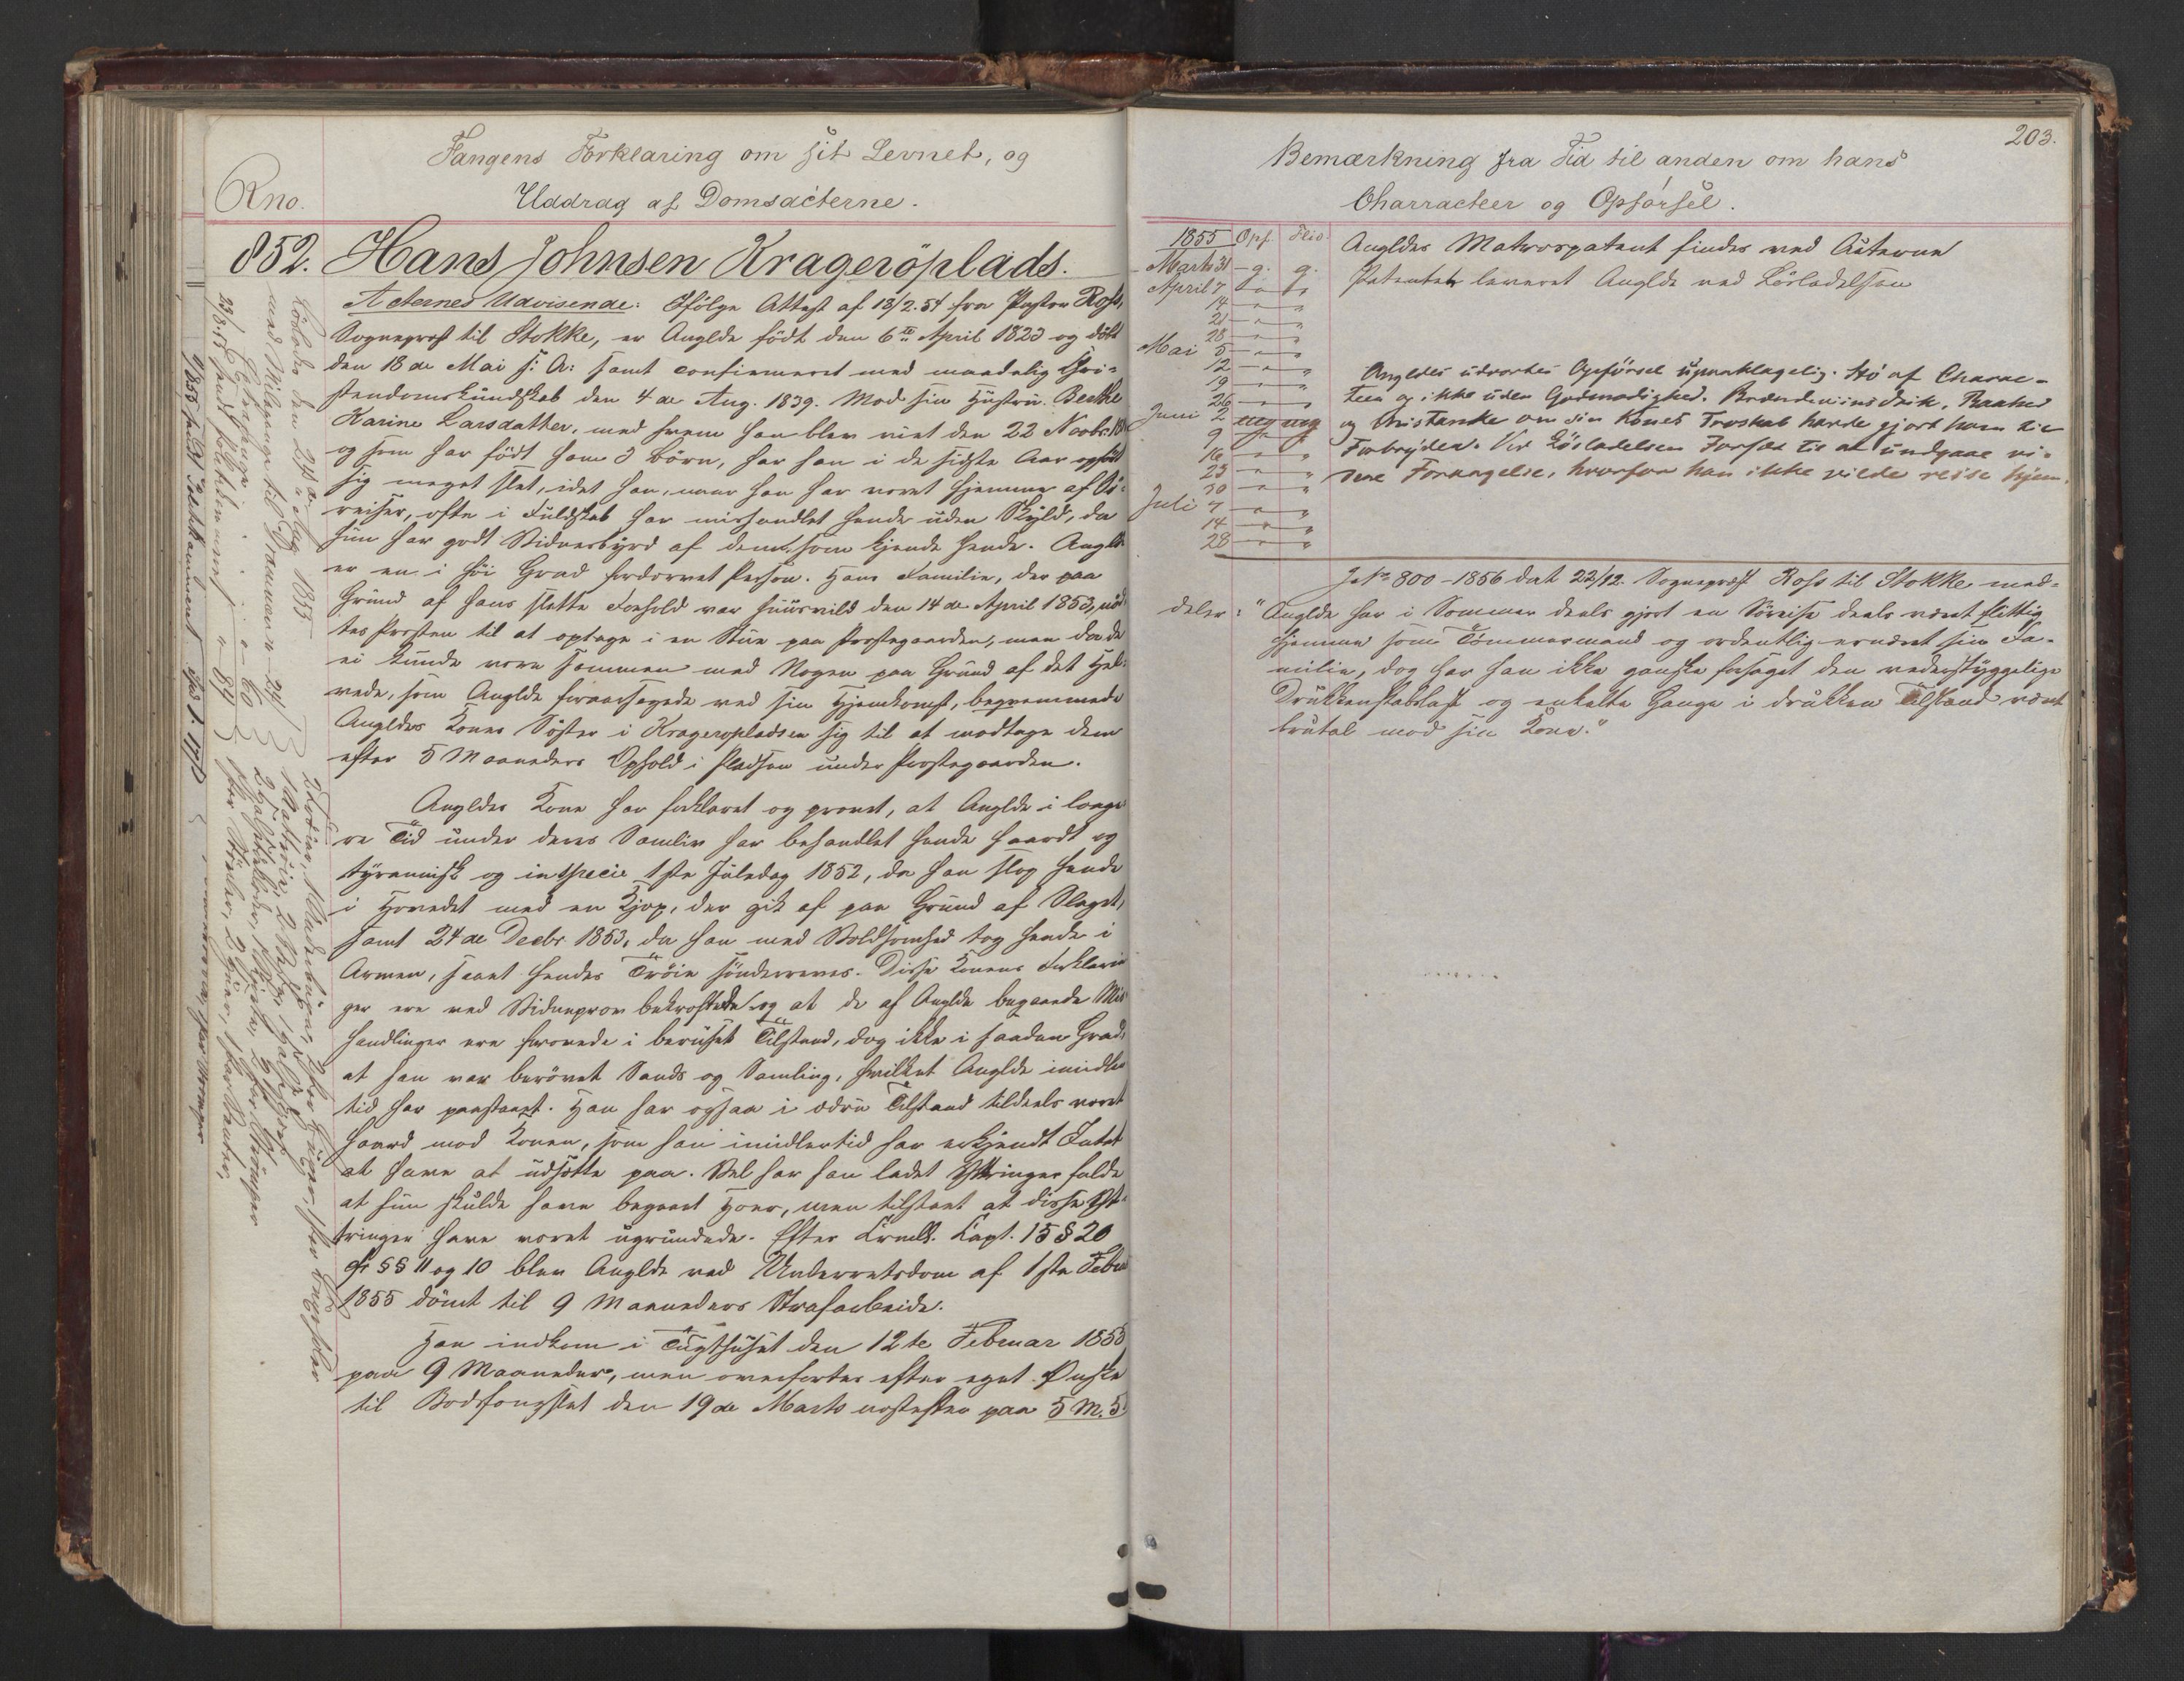 Fangens Forklaring om sit Levnet, og
Rno.
Uddrag af Domsacterne.
852. Hans Johnsen Krageröplads.
Acternes Udvisende: Ifölge Attest af 13/2.54 fra Pastor Ross,
Sogneprest til Stokke, er Anglde födt den 6te April 1823 og döbt
den 18de Mai s: A: samt confirmeret med maadelig Chri-
stendomskundskab den 4de Aug. 1839. Mod sin Hustru Berthe
Karine Larsdatter, med hvem han blev viet den 22 Novbr.
og som har födt ham 3 Börn, har han i de sidste Aar opfört
sig meget slet, idet han, naar han har været hjemme af Sö-
reiser, ofte i Fuldskab har mishandlet hende uden Skyld, da
hun har godt Vidnesbyrd af dem som kjende hende. Anglde
er en i höi Grad fordærvet Person. Hans Familie, der paa
Grund af hans slette Forhold var huusvild den 14de April 1853, nöd-
tes Presten til at optage i en Stue paa Prestegaarden, men da de
ei kunde være sammen med Nogen paa Grund af det Hel-
vede, som Anglde foraarsagede ved sin Hjemkomst, beqvemmede
Angldes Kones Söster i Krageröpladsen sig til at modtage dem
efter 5 Maaneders Ophold i Pladsen under Prestegaarden.
Angldes Kone har forklaret og prövet, at Anglde i længe-
re Tid under deres Samliv har behandlet hende haardt og
tyrannisk og in specie 1ste Juledag 1852, da han slog hende
i Hovedet med en Kjep, der gik af paa Grund af Slaget,
samt 24de Decbr 1853, da han med Voldsomhed tog hende i
Armen, samt hendes Tröie sönderreves. Disse Konens Forklarin-
ger ere ved Vidneprov bekræftede og at de af Anglde begaaede Mis-
handlinger ere forövede i beruset Tilstand, dog ikke i saadan Grad,
at han var berövet Sands og Samling, hvilket Anglde imidler-
tid har paastaaet. Han har ogsaa i ædru Tilstand tildeels været
haard mod Konen, som han imidlertid har erkjendt Intet
at have at udsætte paa. Vel har han ladet Yttringer falde
at hun skulde have begaaet Hoer, men tilstaaet at disse Yt-
tringer have været ugrundede. Efter Crmll. Capt. 15 § 20
cfr §§ 11 og 10 blev Anglde ved Underretsdom af 1ste Febr
1855 dömt til 9 Maaneders Strafarbeide.
Han indkom i Tugthuset den 12te Februar 1855
paa 9 Maaneder, men overfortes efter eget Önske
til Bodsfængslet den 19de Marts næstefter paa 5 M. 5
Lösladt den 24de Aug 1855
203.
Bemærkning fra Tid til anden om hans
Charracteer og Opförsel.
1855 Opf. Flid
Marts 31 g. g.
April 7 " "
14 " "
21 " "
28 " "
Mai 5 " "
12 " "
19 " "
26 " "
Juni 2 mg mg
9 " "
16 " "
23 " "
30 " "
Juli 7 " "
14 " "
28 " "
Angldes Matrospatent findes ved Acterne
Patentet leveret Anglde ved Lösladelsen
Angldes udvortes Opförsel upaaklagelig. Stö af Charac-
teer og ikke uden Godmodighed. Brændeviinsdrik, Raahed
og Mistanke om sin Kones Troskab havde gjort ham til
Forbryder. Ved Lösladelsen Forsæt til at undgaae vi-
dere Forseelse, hvorfor han ikke vilde reise hjem.
JNo 800-1856 dat 22/12. Sogneprest Ross til Stokke med-
deler: "Anglde har i Sommer deels gjort en Söreise deels været flittig
hjemme som Tömmermand og ordentlig ernæret sin Fa-
milie, dog har han ikke ganske forsaget den vederstyggelige
Drukkenskabslast og enkelte Gange i drukken Tilstand været
brutal mod sin Kone."